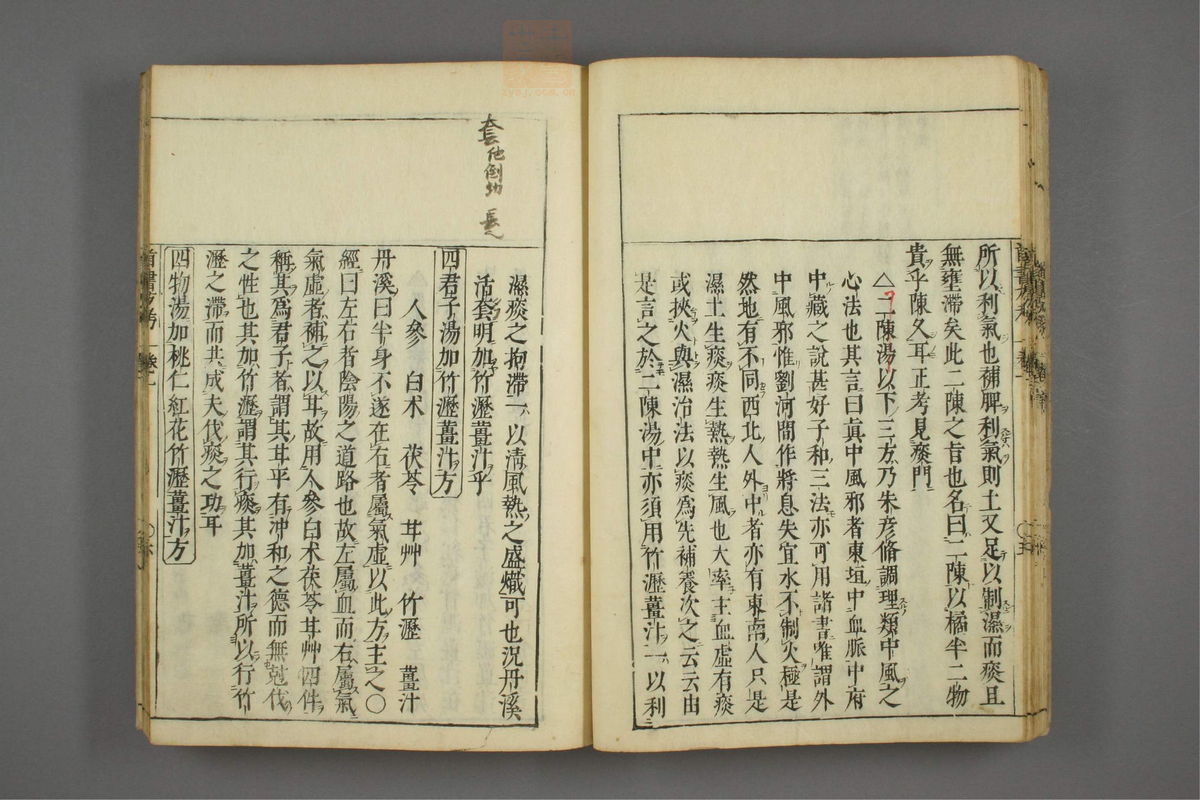 所以利氣也補脾利氣則土又足以制濕而痰且
無壅滯矣此二陳之旨也名曰二陳以橘半二物
貴乎陳久耳正考見痰門
△二陳湯以下三方乃朱彥脩調理類中風之
心法也其言曰真中風邪者東垣中血脈中府
中藏之說甚好子和三法亦可用諸書唯謂外
中風邪惟劉河間作將息失宜水不制火極是
然地有不同西北人外中者亦有東南人只是
濕土生痰痰生熱熱生風也大率主血虛有痰
或挾火與濕治法以痰為先補養次之云云由
是言之於二陳湯中亦須用竹瀝薑汁二以利
濕痰之拘滯一以清風熱之盛熾可也況丹溪
活套明加竹瀝薑汁乎
四君子湯加竹瀝薑汁方
人參 白朮 茯苓 甘艸 竹瀝 薑汁
丹溪曰半身不遂在右者屬氣虛以此方主之○
經曰左右者陰陽之道路也故左屬血而右屬氣
氣虛者補之以甘故用人參白朮茯苓甘艸四件
稱其為君子者謂其甘平有沖和之德而無尅伐
之性也其加竹瀝謂其行痰其加薑汁所以行竹
瀝之滯而共成夫伐痰之功耳
四物湯加桃仁紅花竹瀝薑汁方